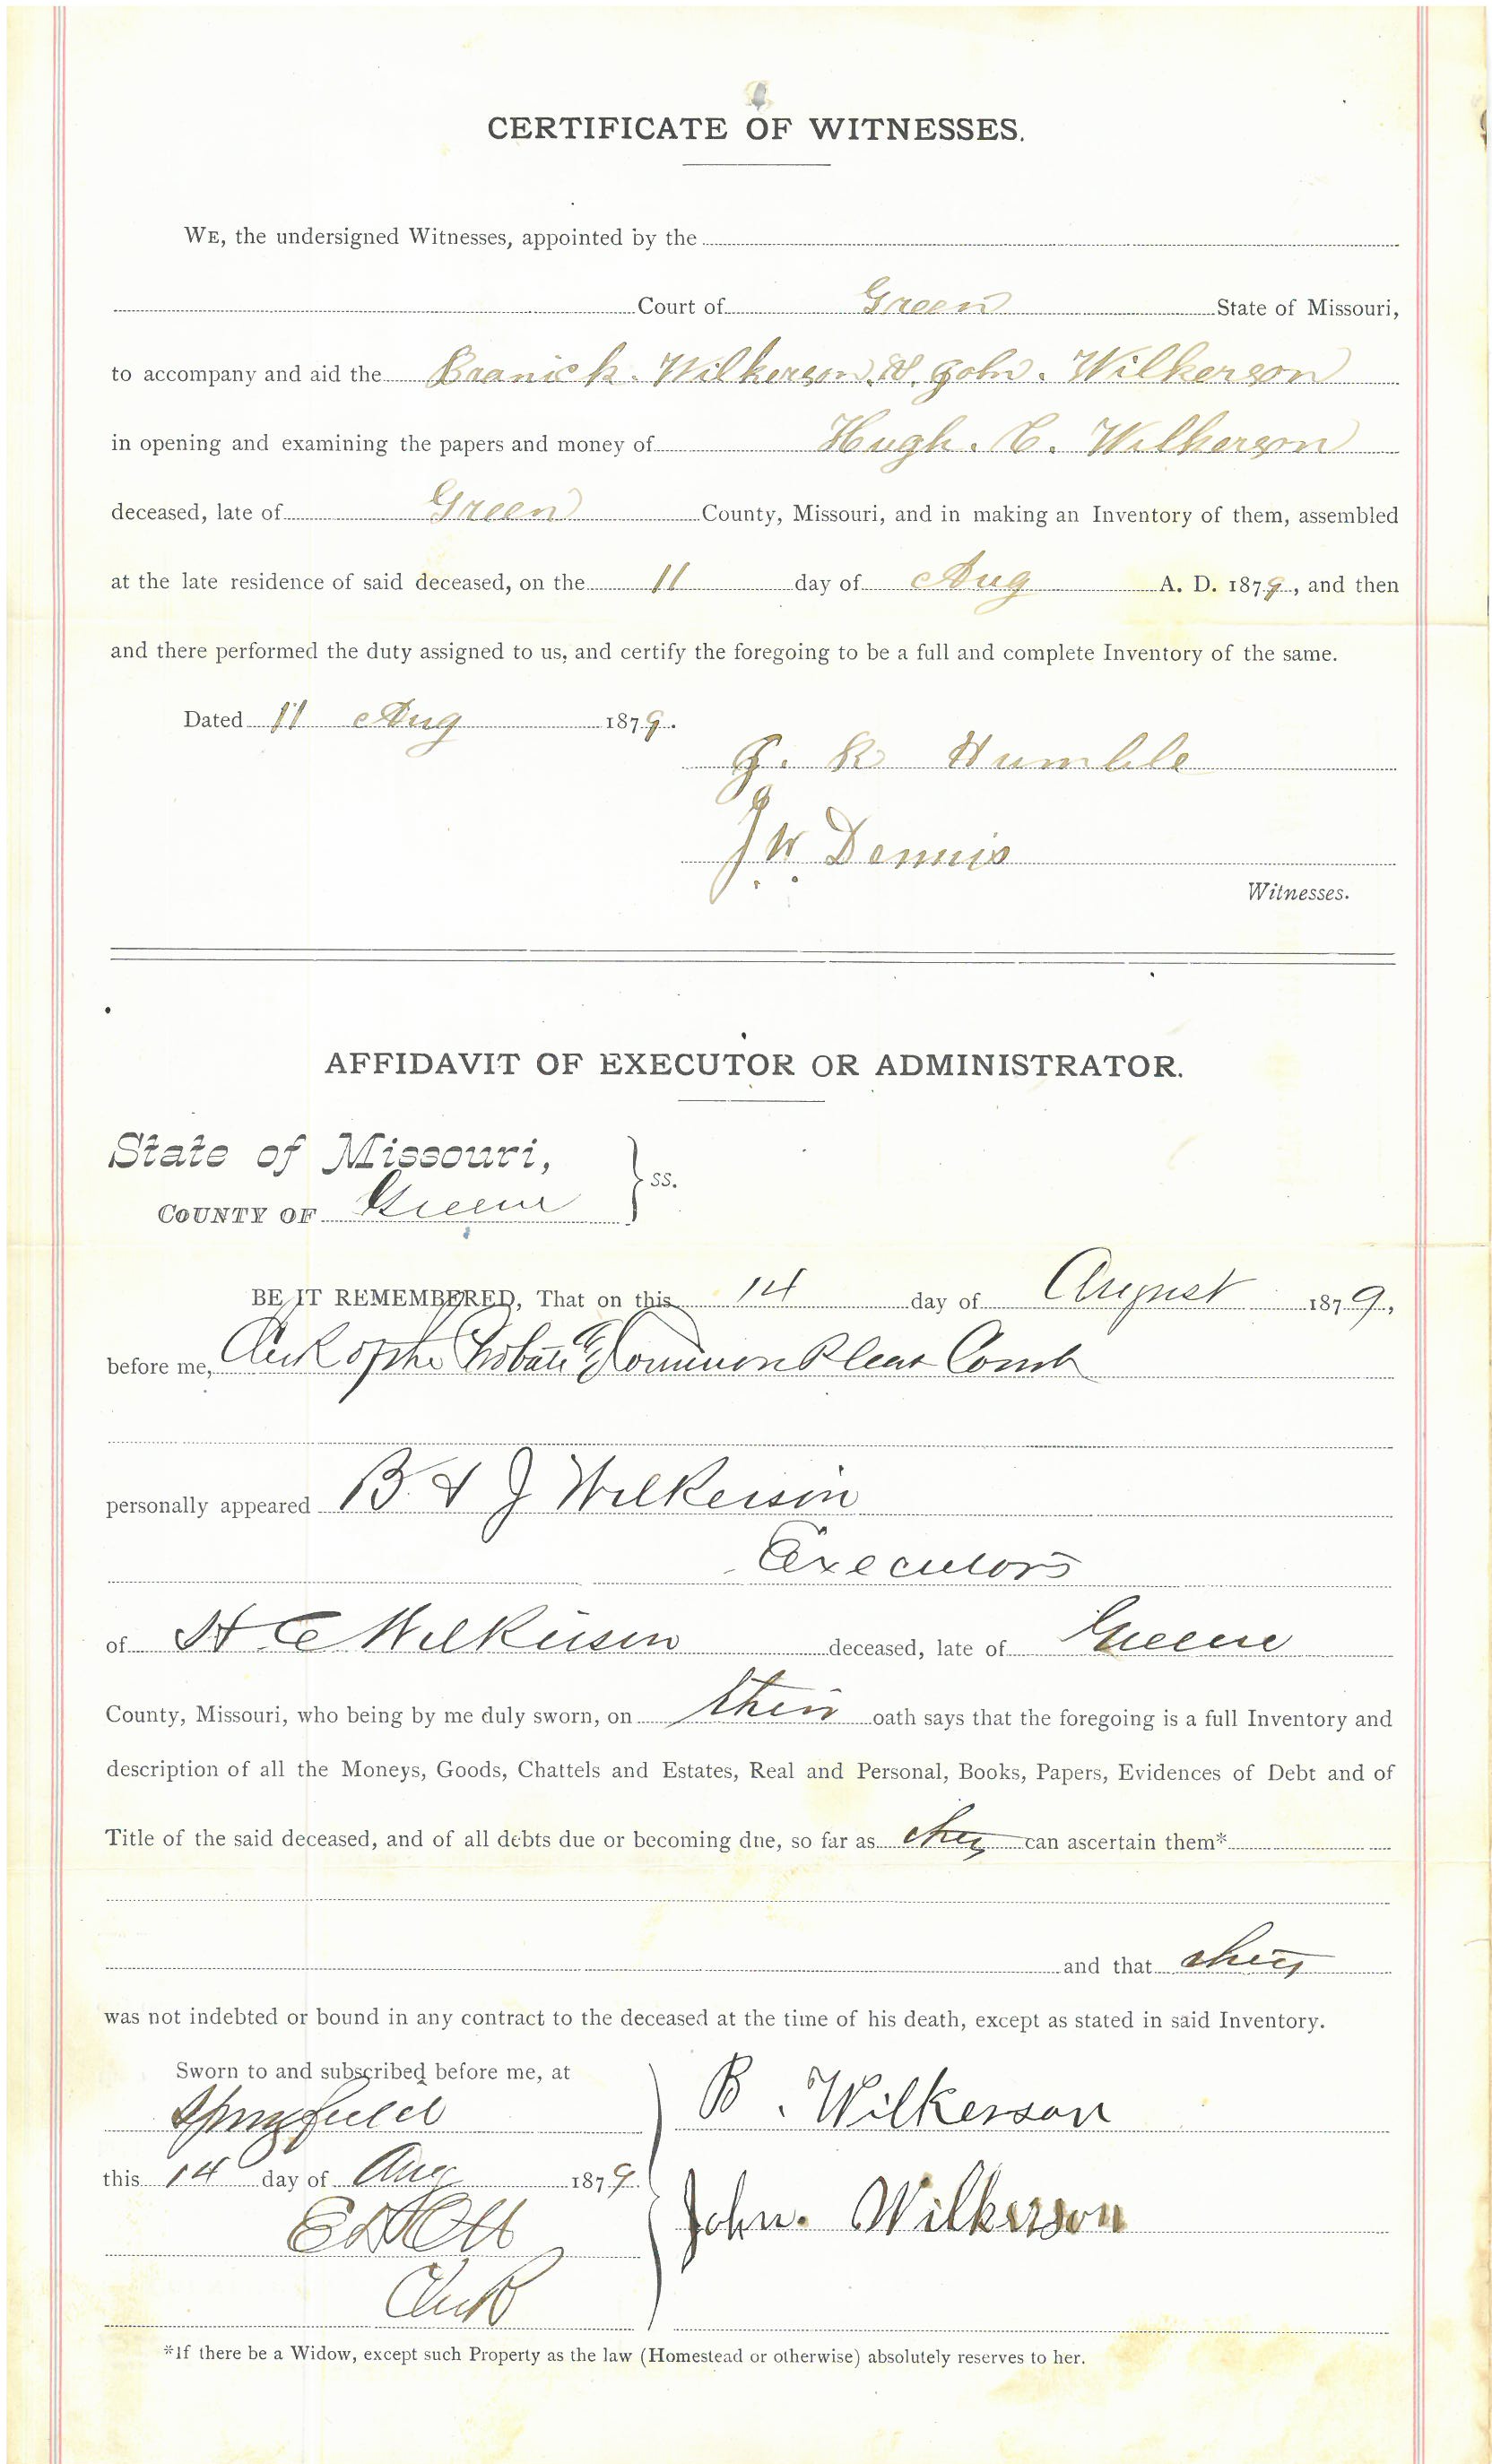 CERTIFICATE OF WITNESSES.
WE, the undersigned Witnesses, appointed by the
Court of Green State of Missouri,
to accompany and aid the Branick. Wilkerson, & John. Wilkerson
in opening and examining the papers and money of Hugh. C. Wilkerson
deceased, late of Green County, Missouri, and in making an Inventory of them, assembled
at the late residence of said deceased, on the 11 day of Aug A. D. 1879, and then
and there performed the duty assigned to us, and certify the foregoing to be a full and complete Inventory of the same.
Dated 11 Aug 1879.
J. R Humble
J W Dennis
Witnesses.
AFFIDAVIT OF EXECUTOR OR ADMINISTRATOR.
State of Missouri,
COUNTY OF Greene } ss.
BE IT REMEMBERED, That on this 14 day of August 1879,
before me, Clerk of the Probate & Common Pleas Court
personally appeared B. & J Wilkerson
Executors
of H C Wilkerson deceased, late of Greene
County, Missouri, who being by me duly sworn, on their oath says that the foregoing is a full Inventory and
description of all the Moneys, Goods, Chattels and Estates, Real and Personal, Books, Papers, Evidences of Debt and of
Title of the said deceased, and of all debts due or becoming due, so far as they can ascertain them*
and that they
was not indebted or bound in any contract to the deceased at the time of his death, except as stated in said Inventory.
Sworn to and subscribed before me, at
Springfield
B. Wilkerson
this 14 day of Aug 1879.
John. Wilkerson
Clerk
*If there be a Widow, except such Property as the law (Homestead or otherwise) absolutely reserves to her.